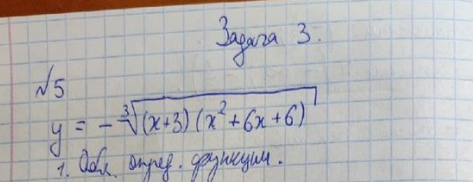 Задача 3.
№5
y = -∛((x+3)(x²+6x+6))
1. Обл. опред. функции.